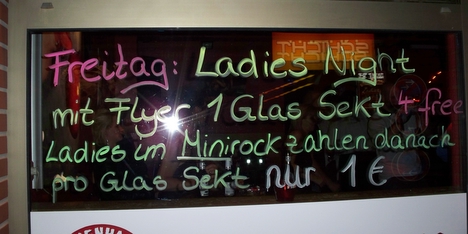 Freitag: Ladies Night
mit Flyer 1 Glas Sekt 4 free
Ladies im Minirock zahlen danach
pro Glas Sekt nur 1 €